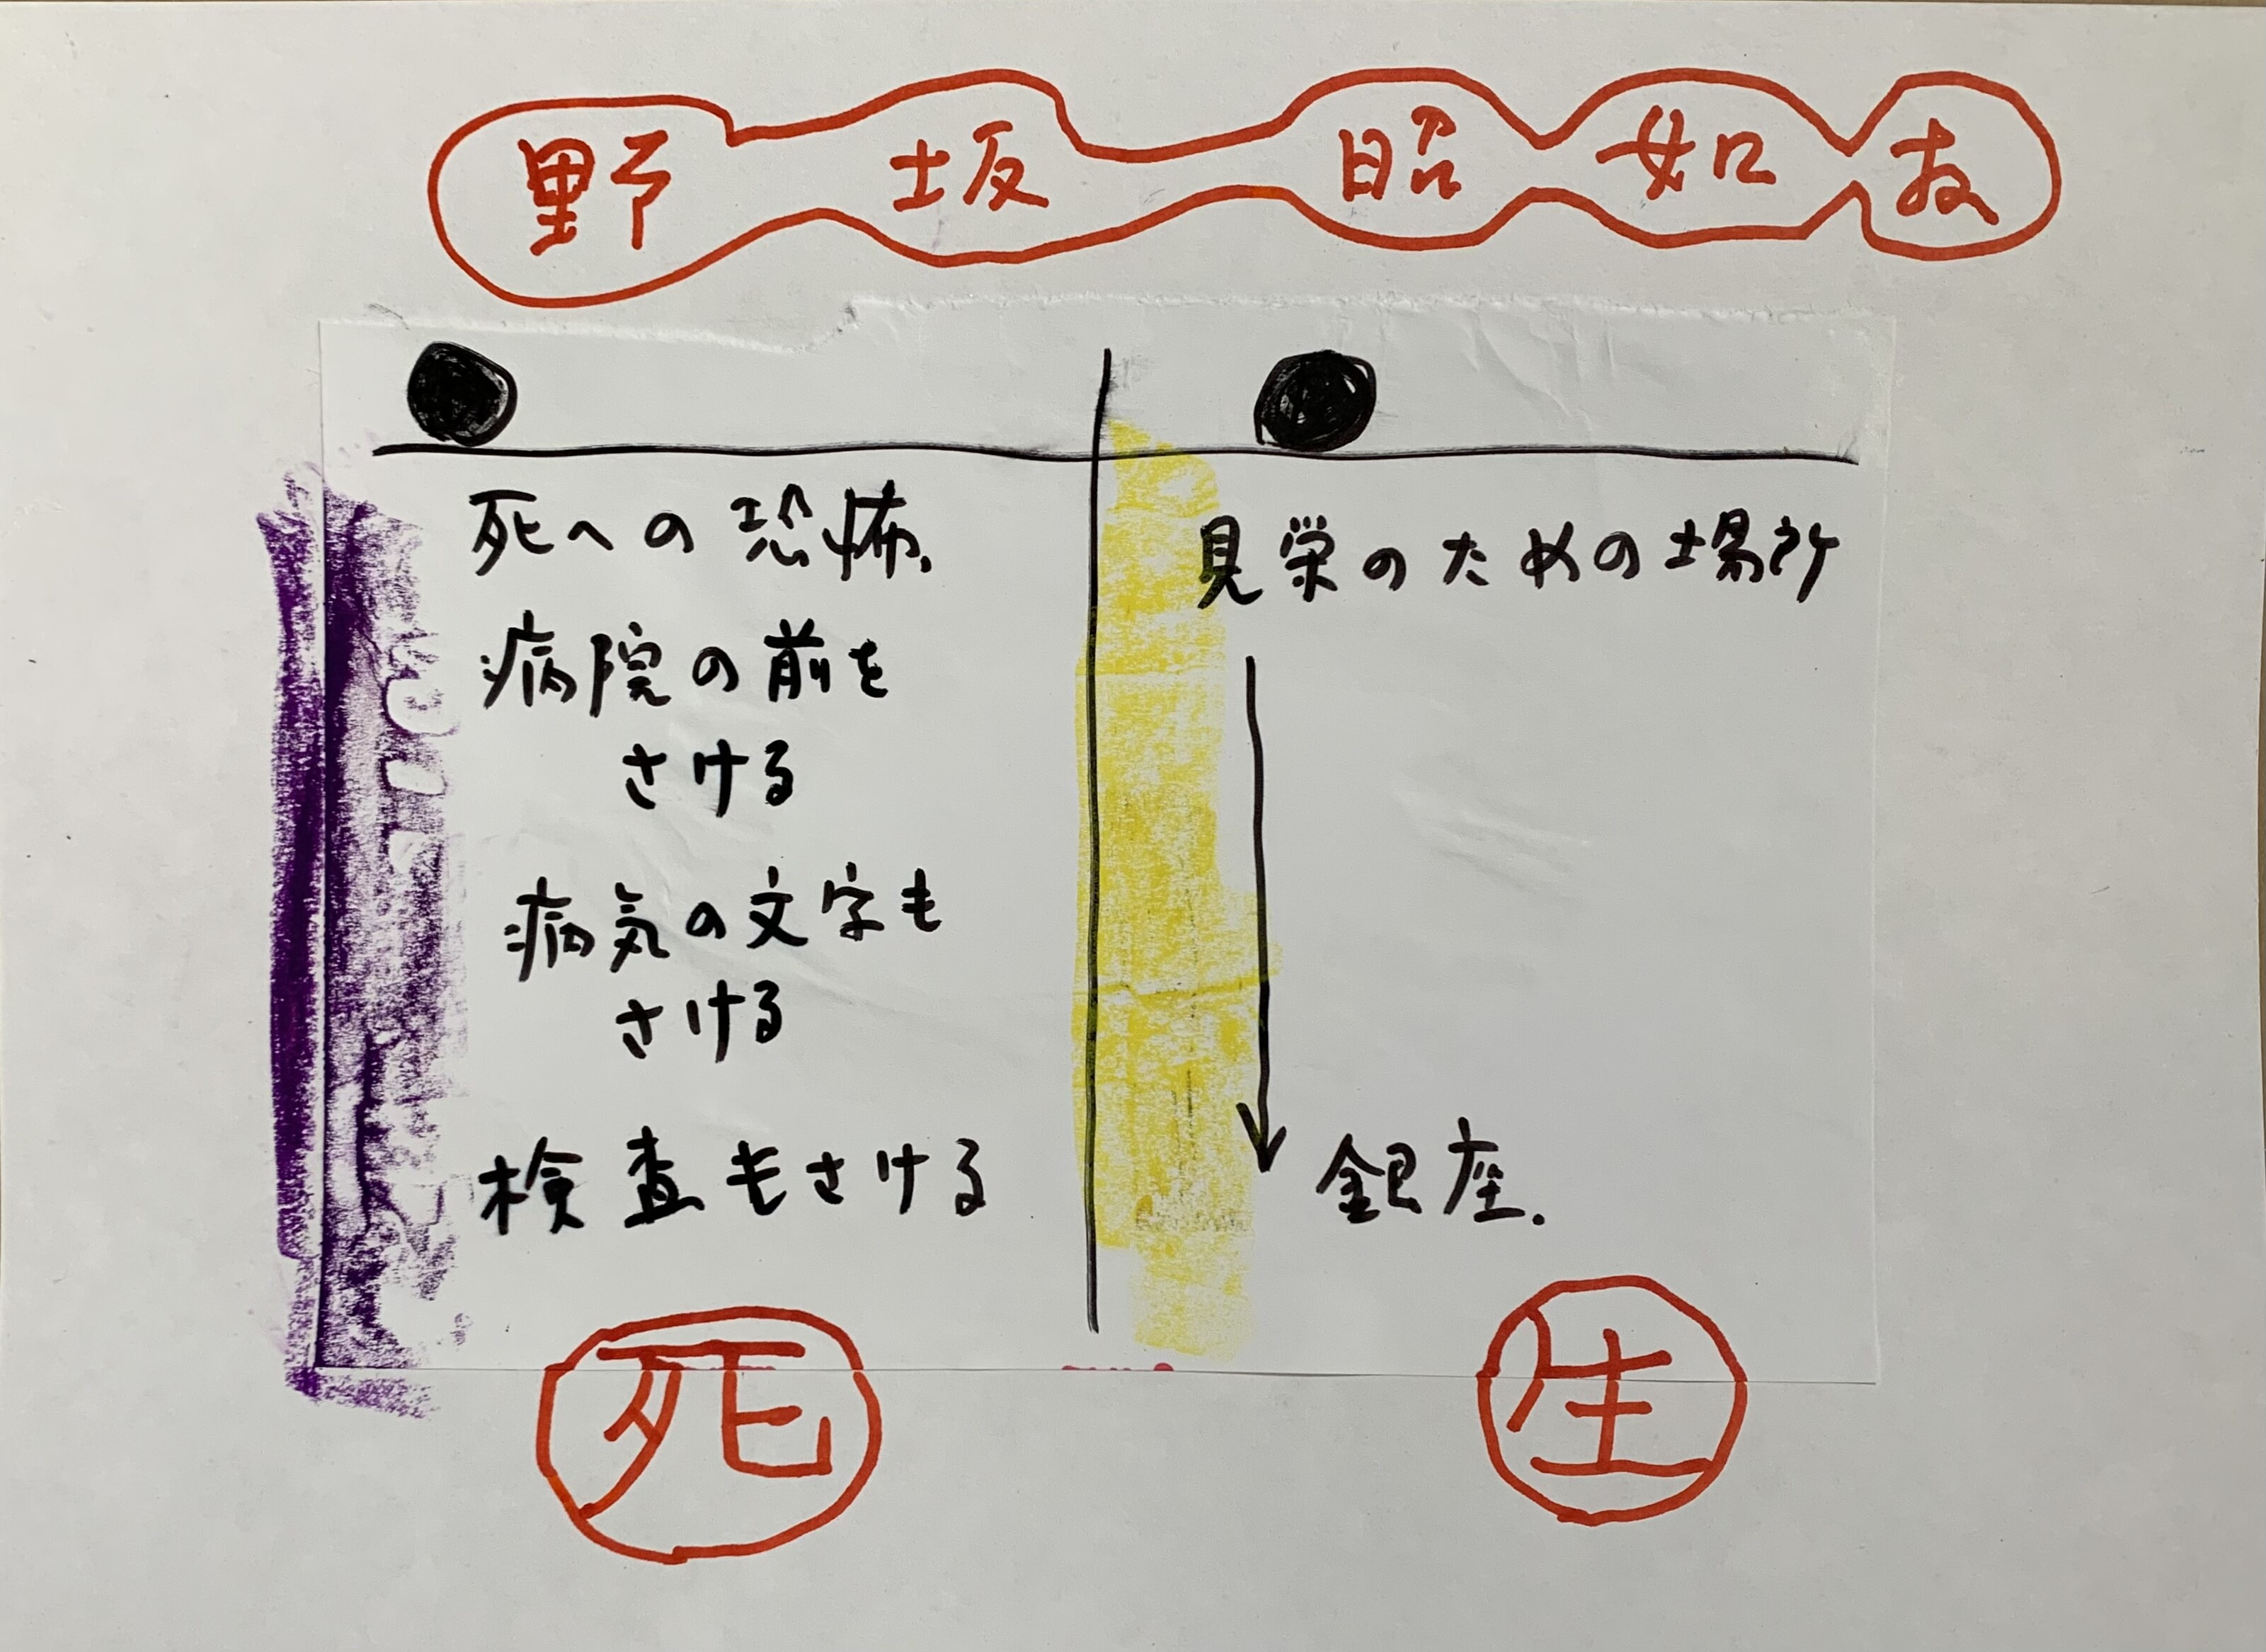 野坂昭如
死への恐怖、
病院の前を
さける
病気の文字も
さける
検査もさける
死
見栄のための場所
銀座.
生